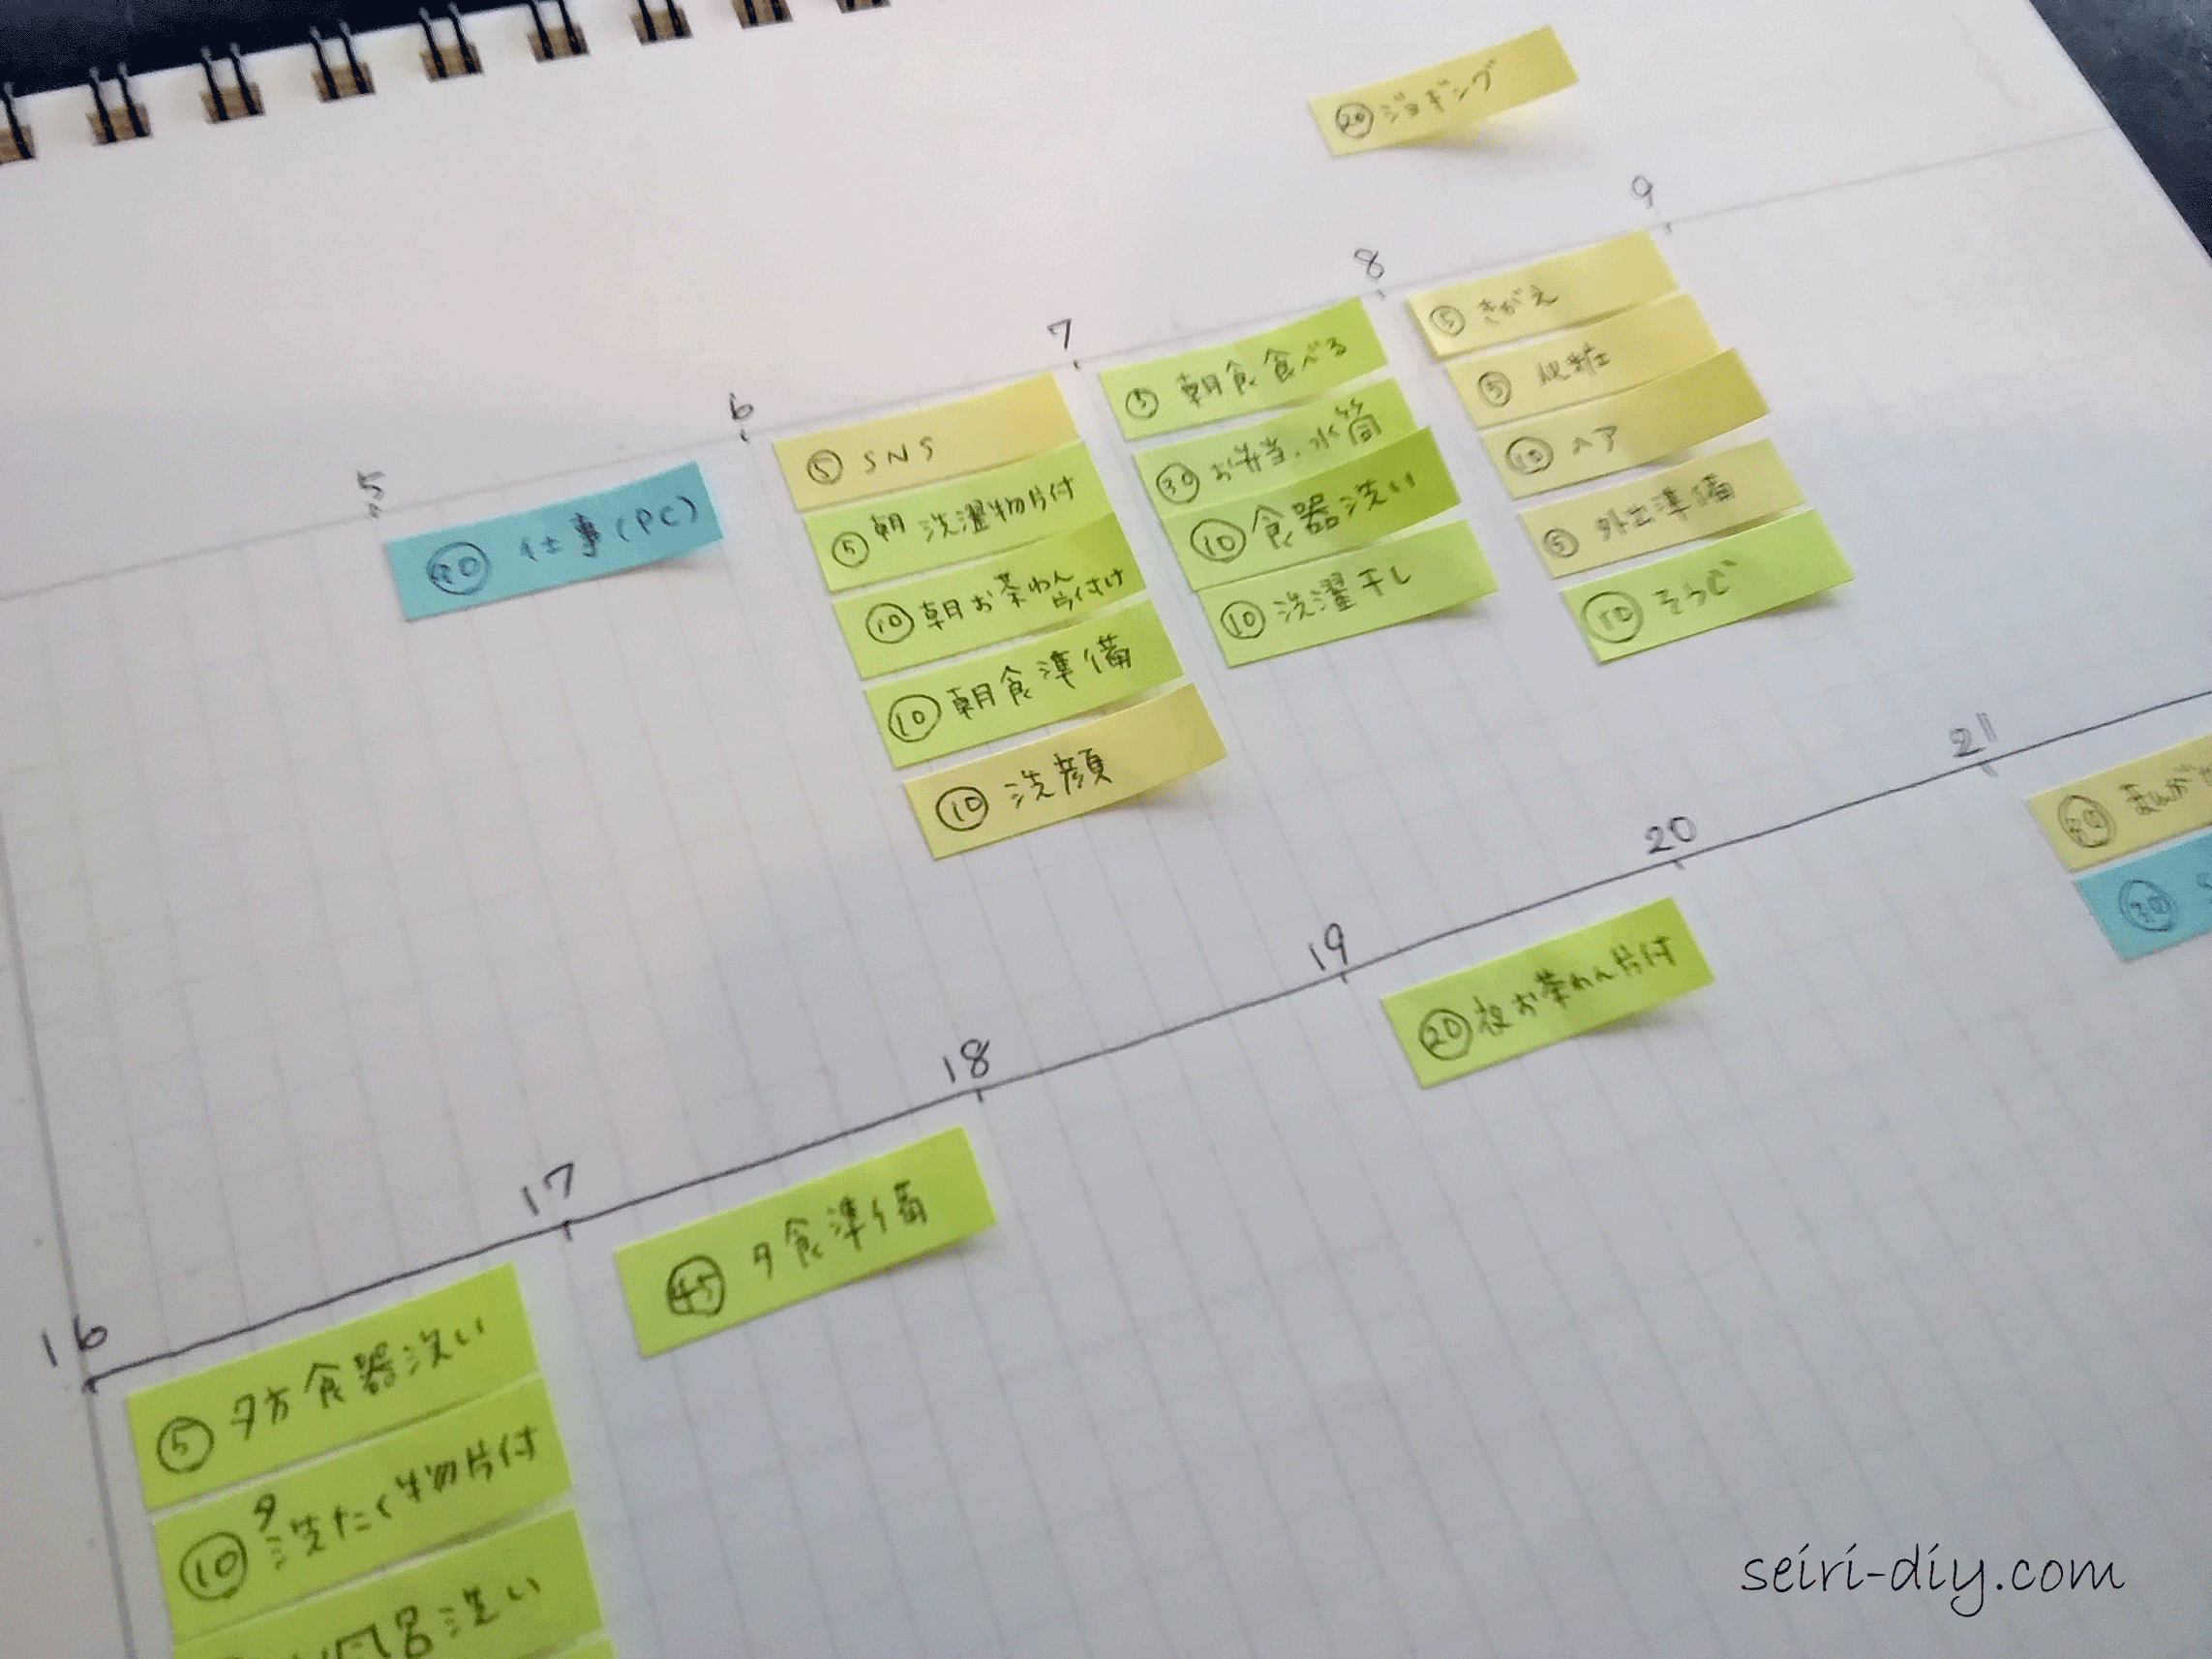 ⑳ジョギング
5
6
7
8
9
仕事(PC)
⑤ SNS
⑤朝 洗濯物片付
⑩朝お茶わん片付け
⑩朝食準備
⑩洗顔
⑤ 朝食食べる
㉚お弁当、水筒
⑩食器洗い
⑩洗濯干し
⑤ きがえ
⑤ 化粧
⑩ ヘア
⑤ 外出準備
⑩ そうじ
16
17
18
19
20
21
⑤ 夕方食器洗い
⑩夕洗たく物片付
風呂洗い
㊺ 夕食準備
⑳夜お茶わん片付
㉚ まんが
㉚
seiri-diy.com